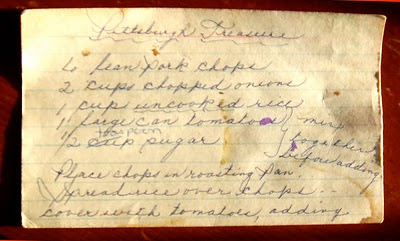 Pittsburgh Treasure
6 lean pork chops
2 cups chopped onions
1 cup uncooked rice
1 large can tomatoes
mix
together
before adding
teaspoon
1/2 cup sugar
Place chops in roasting pan.
Spread rice over chops --
cover with tomatoes, adding